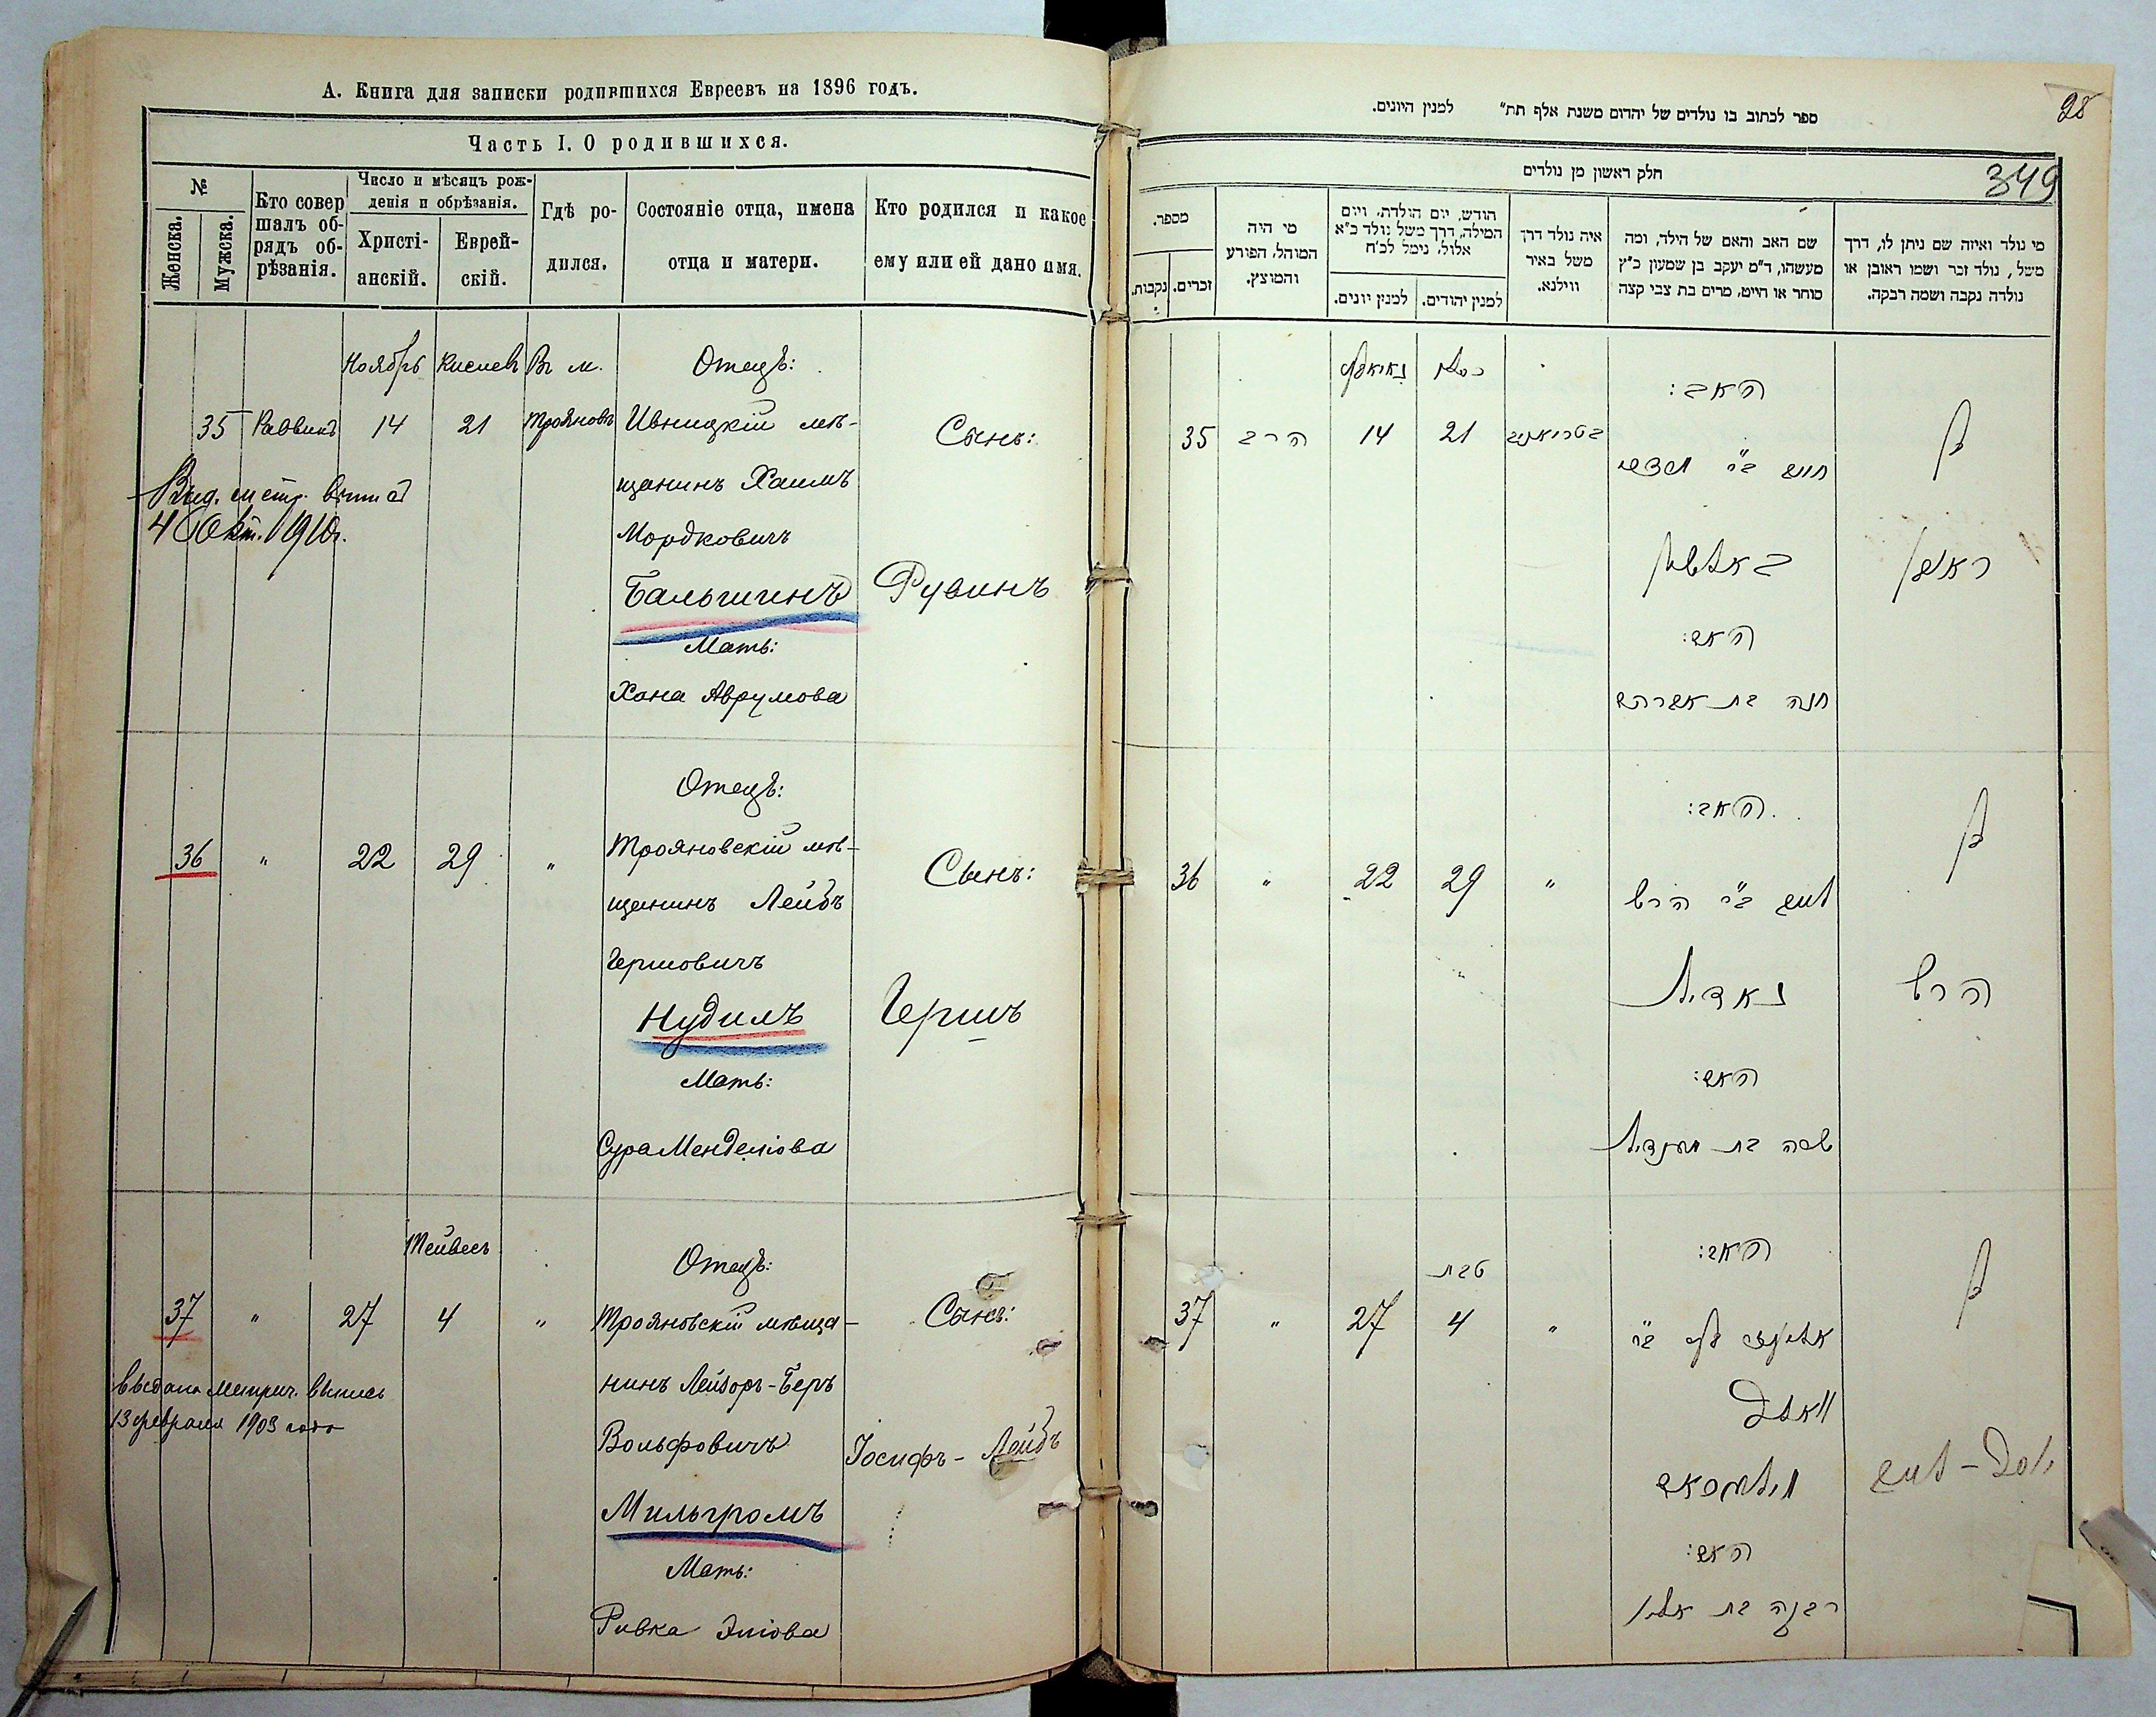 А. Книга для записки родившихся Евреевъ на 1896 годъ.
Часть I. О родившихся.
№
Женска.
Мужска.
Кто совер
шалъ об-
рядъ об-
рѣзанія.
Число и мѣсяцъ рож-
денія и обрѣзанія.
Христі-
анскій.
Еврей-
скій.
Гдѣ ро-
дился.
Состояніе отца, имена
отца и матери.
Кто родился и какое
ему или ей дано имя.
Ноябрь Кислевъ Въ м. Отецъ:
35 Раввинъ 14 21 Трояновъ Ивницкій мѣ- Сынъ:
Выд. метр. вып.
4 Окт. 1910г.
щанинъ Хаимъ
Мордковичъ
Бальшинъ Рувинъ
Мать:
Хана Аврумова
Отецъ:
36 " 22 29 " Трояновскій мѣ- Сынъ:
щанинъ Лейбъ
Гершовичъ
Нудилъ Гершъ
Мать:
Сура Менделіова
Тейвесъ
Отецъ:
37 " 27 4 " Трояновскій мѣща- Сынъ:
выдана метрич. выпись
13 февраля 1903 года
нинъ Лейзоръ-Беръ
Вольфовичъ Іосифъ-Лейбъ
Мильгромъ
Мать:
Ривка Эліова
28
349
ספר לכתוב בו נולדים של יהדום משנת אלף תת״ למנין היונים.
חלק ראשון מן נולדים
מספר.
נקבות.
זכרים.
מי היה
המוהל, הפורע
והמוצץ.
חודש, יום הולדת, ויום
המילה, דרך משל נולד כ״א
אלול, נימל לכ״ח
למנין יונים.
למנין יהודים.
איה נולד דרך
משל באיר
ווילנא.
שם האב והאם של הילד, ומה
מעשהו, ד״מ יעקב בן שמעון כ״ץ
סוחר או חייט, מרים בת צבי קצה
מי נולד ואיזה שם ניתן לו, דרך
משל, נולד זכר ושמו ראובן או
נולדה נקבה ושמה רבקה.
כסלו
האב:
35 הרב 14 21 בטריאנוב בן
חיים ב״ר מרדכי
באלשין ראובן
האם:
חנה בת אברהם
האב:
36 " 22 29 " בן
לייב ב״ר הרש
נאדיל הרש
האם:
שרה בת מענדיל
טבת
האב:
37 " 27 4 " בן
אליעזר בער ב״ר
וואלף
מילגראם יוסף-לייב
האם:
רבקה בת